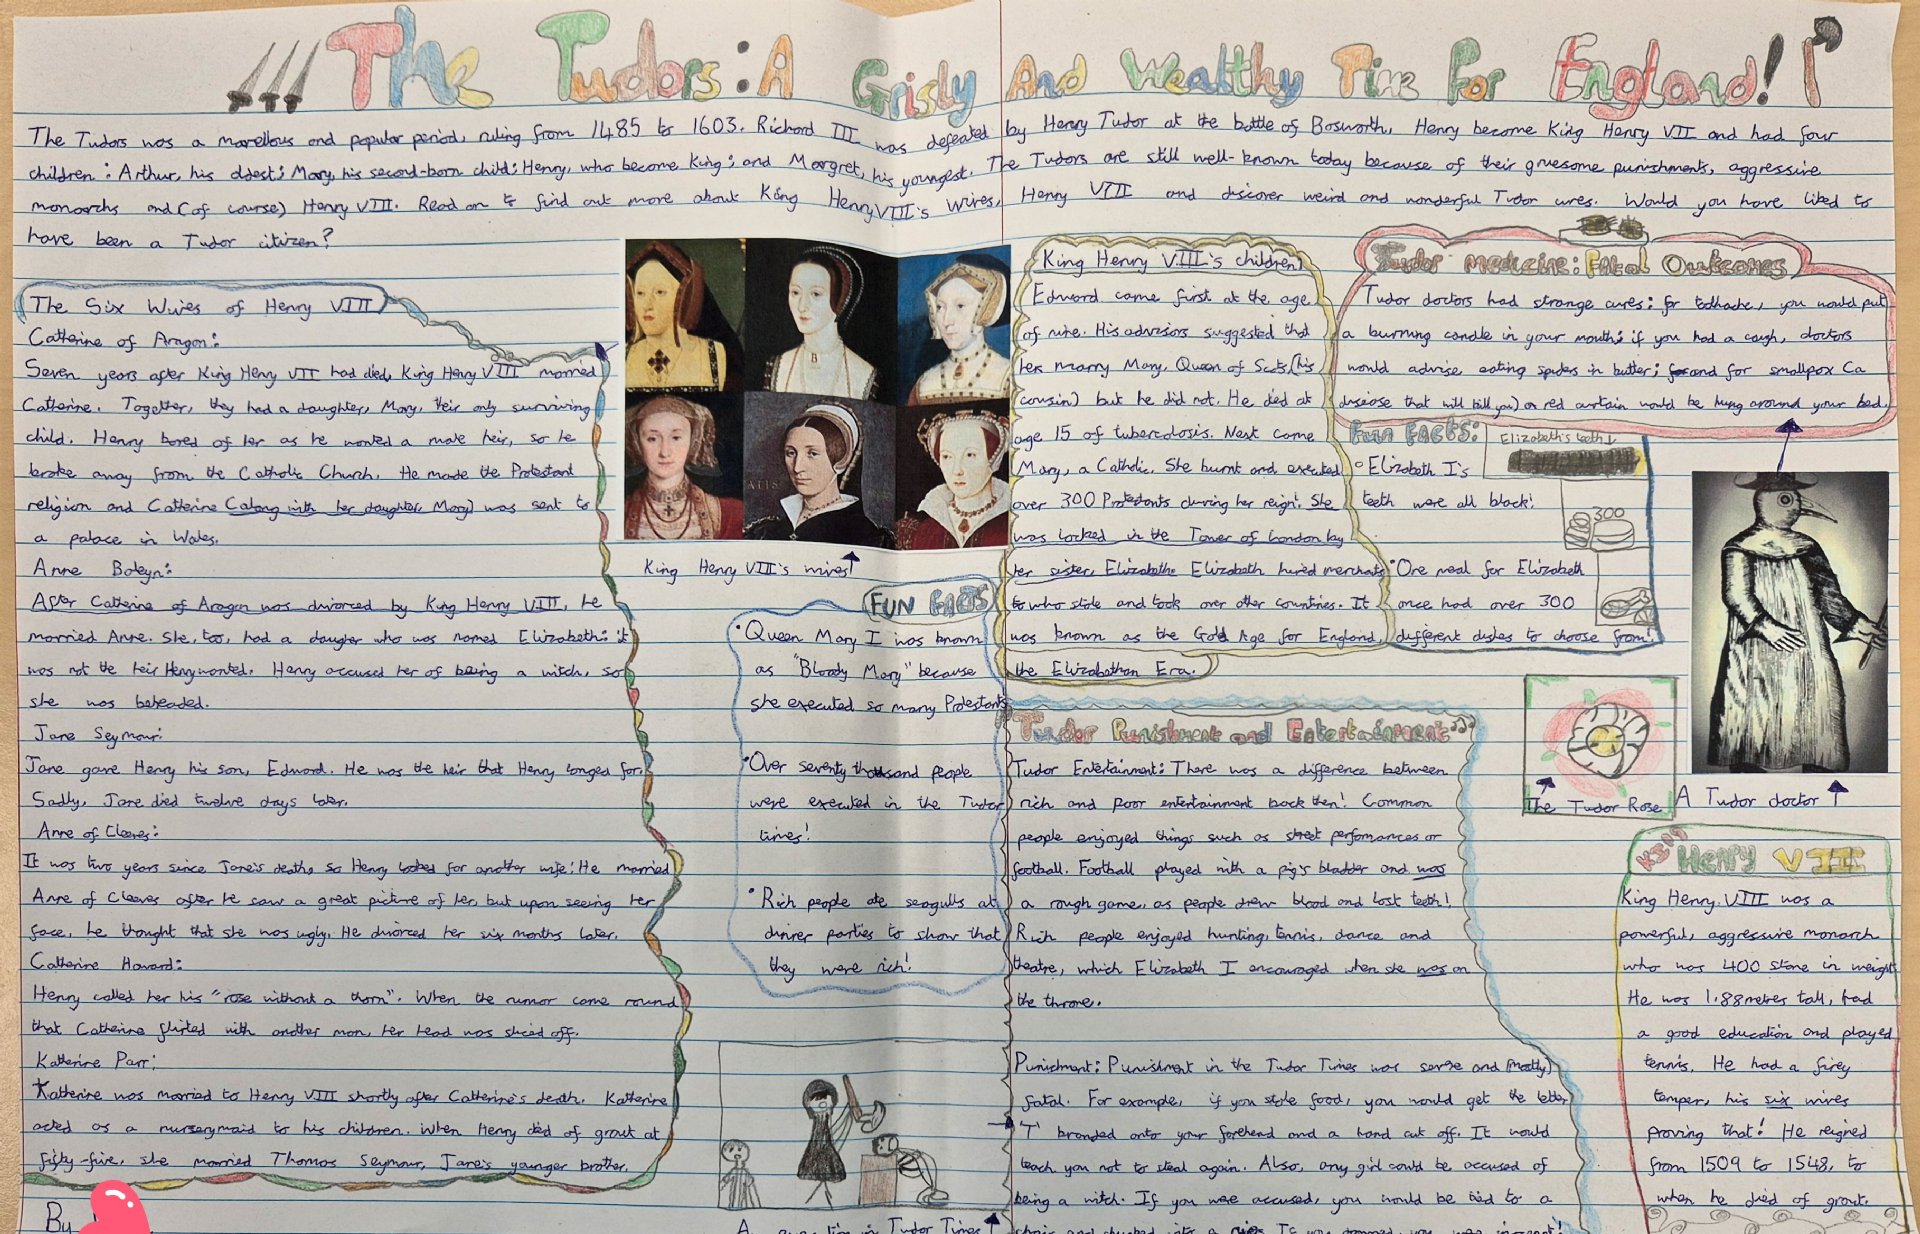 The Tudors: A Grisly And Wealthy Time For England!
The Tudors was a marvellous and popular period, ruling from 1485 to 1603. Richard III was defeated by Henry Tudor at the battle of Bosworth, Henry become King Henry VII and had four
children: Arthur, his oldest; Mary, his second-born child; Henry, who become King; and Margret, his youngest. The Tudors are still well-known today because of their gruesome punishments, aggressive
monarchs and (of course) Henry VIII. Read on to find out more about King Henry VIII's wives, Henry VIII and discover weird and wonderful Tudor cures. Would you have liked to
have been a Tudor citizen?
The Six Wives of Henry VIII
Catherine of Aragon:
Seven years after King Henry VII had died, King Henry VIII married
Catherine. Together, they had a daughter, Mary, their only surviving
child. Henry bored of her as he wanted a male heir, so he
broke away from the Catholic Church. He made the Protestant
religion and Catherine (along with her daughter, Mary) was sent to
a palace in Wales.
Anne Boleyn:
After Catherine of Aragon was divorced by King Henry VIII, he
married Anne. She, too, had a daugher who was named Elizabeth: it
was not the heir Henry wanted. Henry accused her of being a witch, so
she was beheaded.
Jane Seymour:
Jane gave Henry his son, Edward. He was the heir that Henry longed for.
Sadly, Jane died twelve days later.
Anne of Cleeves:
It was two years since Jane's death, so Henry looked for another wife! He married
Anne of Cleeves after he saw a great picture of her, but upon seeing her
face, he thought that she was ugly. He divorced her six months later.
Catherine Havard:
Henry called her his "rose without a thorn". When the rumor came round
that Catherine flirted with another man, her head was sliced off.
Katherine Parr:
Katherine was married to Henry VIII shortly after Catherine's death. Katherine
acted as a nurserymaid to his children. When Henry died of grout at
fifty-five, she married Thomas Seymour, Jane's younger brother.
By
King Henry VIII's wives
FUN FACTS
•Queen Mary I was known
as "Bloody Mary" because
she executed so many Protestants
•Over seventy thousand people
were executed in the Tudor
times!
•Rich people ate seagulls at
dinner parties to show that
they were rich!
A in Tudor Times
King Henry VIII's children
Edward came first at the age
of nine. His advisors suggested that
her marry Mary, Queen of Scots, (his
cousin) but he did not. He died at
age 15 of tubercolosis. Next came
Mary, a Catholic. She burnt and executed
over 300 Protestants during her reign! She
was locked in the Tower of London by
her sister, Elizabeth. Elizabeth hured merchats
to who stole and took over other countries. It
was known as the Gold Age for England,
the Elizabethan Era.
Tudor Punishment and Entertainment
Tudor Entertainment: There was a difference between
rich and poor entertainment back then! Common
people enjoyed things such as street perfomances or
football. Football played with a pig's bladder and was
a rough game, as people drew blood and lost teeth!
Rich people enjoyed hunting, tennis, dance and
theatre, which Elizabeth I encouraged when she was on
the throne.
Punishment: Punishment in the Tudor Times was and (mostly)
fatal. For example, if you stole food, you would get the letter
'T' branded onto your forehend and a hand cut off. It would
teach you not to steal again. Also, any girl could be accused of
being a witch. If you were accused, you would be tied to a
chair and chucked into a
Tudor medicine: Fatal Outcomes
Tudor doctors had strange cures: for tothache, you would put
a burning candle in your mouth; if you had a cough, doctors
would advise eating spiders in butter; and for smallpox (a
disease that will kill you) a red curtain would be hung around your bed.
FUN FACTS:
Elizabeth's teeth
•Elizabeth I's
teeth were all black!
300
•One meal for Elizabeth
once had over 300
different dishes to choose from!
The Tudor Rose
A Tudor doctor
King Henry VIII
King Henry VIII was a
powerful, aggressive monarch
who was 400 stone in weight
He was 1.88 metres tall, had
a good education and played
tennis. He had a firey
temper, his six wives
proving that! He reigned
from 1509 to 1548, to
when he died of grout.